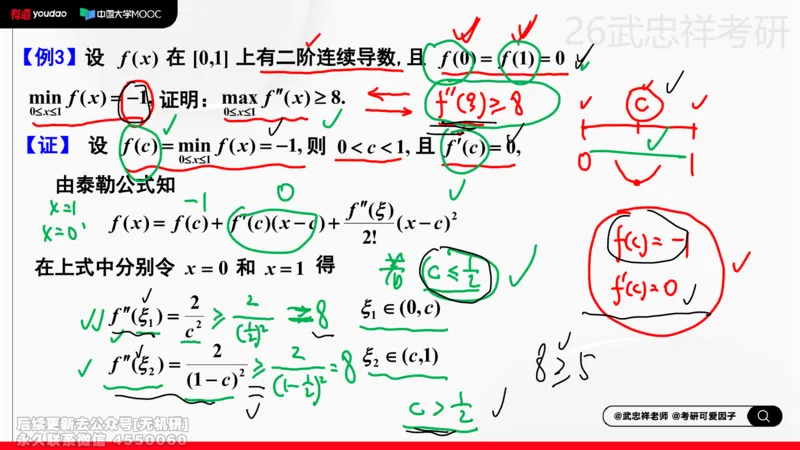 有道 youdao 中国大学MOOC
26武忠祥考研
【例3】设 f(x) 在 [0,1] 上有二阶连续导数,且 f(0) = f(1) = 0
min f(x) = −1, 证明: max f″(x) ≥ 8. f″(ξ) ≥ 8
0≤x≤1 0≤x≤1
C
【证】 设 f(c) = min f(x) = −1, 则 0 < c < 1, 且 f′(c) = 0,
0≤x≤1
0 1
由泰勒公式知
x=1 −1 0
x=0
f(x) = f(c) + f′(c)(x − c) + f″(ξ)/2! (x − c)²
f(c) = −1
f′(c) = 0
在上式中分别令 x = 0 和 x = 1 得
c ≤ 1/2
f″(ξ₁) = 2/c² ≥ 2/(1/2)² = 8 ξ₁ ∈ (0,c)
f″(ξ₂) = 2/(1 − c)² ≥ 2/(1−1/2)² = 8 ξ₂ ∈ (c,1)
8 ≥ 5
c > 1/2
@武忠祥老师 @考研可爱因子
后续更新去公众号[无机研]
永久联系微信 4550060